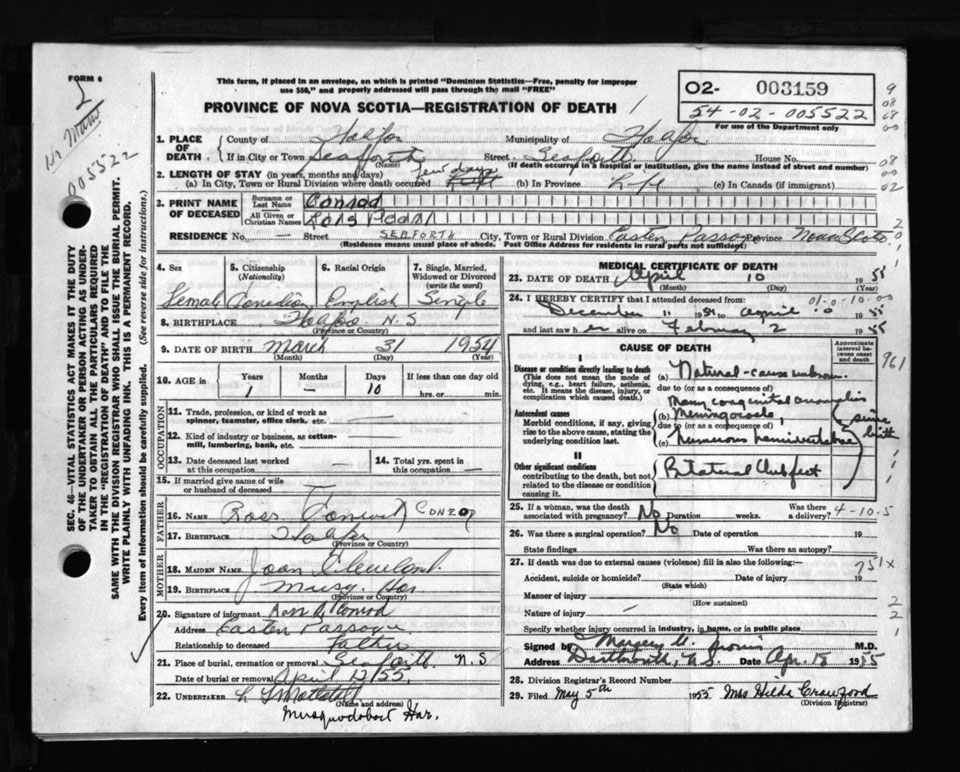 FORM 6
This form, if placed in an envelope, on which is printed "Dominion Statistics—Free, penalty for improper
use $50," and properly addressed will pass through the mail "FREE"
PROVINCE OF NOVA SCOTIA—REGISTRATION OF DEATH
O2- 003159
54-02-005522
For use of the Department only
005522
SEC. 46—VITAL STATISTICS ACT MAKES IT THE DUTY
OF THE UNDERTAKER OR PERSON ACTING AS UNDER-
TAKER TO OBTAIN ALL THE PARTICULARS REQUIRED
IN THE "REGISTRATION OF DEATH" AND TO FILE THE
SAME WITH THE DIVISION REGISTRAR WHO SHALL ISSUE THE BURIAL PERMIT.
WRITE PLAINLY WITH UNFADING INK. THIS IS A PERMANENT RECORD.
Every item of information should be carefully supplied. (See reverse side for instructions.)
1. PLACE OF DEATH County of Halifax Municipality of Halifax
If in City or Town Seaforth Street Seaforth House No.
(Name) (If death occurred in a hospital or institution, give the name instead of street and number)
2. LENGTH OF STAY (in years, months and days)
(a) In City, Town or Rural Division where death occurred few days (b) In Province Life (c) In Canada (if immigrant)
3. PRINT NAME OF DECEASED
Surname or Last Name Conrod
All Given or Christian Names Lois Pearl
RESIDENCE No. — Street SEAFORTH City, Town or Rural Division Eastern Passage Province Nova Scotia
(Residence means usual place of abode. Post Office Address for residents in rural parts not sufficient)
4. Sex 5. Citizenship (Nationality) 6. Racial Origin 7. Single, Married, Widowed or Divorced (write the word)
Female Canadian English Single
8. BIRTHPLACE N.S
(Province or Country)
9. DATE OF BIRTH March 31 1954
(Month) (Day) (Year)
10. AGE in Years Months Days If less than one day old
1 — 10 hrs. or min.
OCCUPATION
11. Trade, profession, or kind of work as spinner, teamster, office clerk, etc. —
12. Kind of industry or business, as cotton-mill, lumbering, bank, etc. —
13. Date deceased last worked at this occupation — 14. Total yrs. spent in this occupation —
15. If married give name of wife or husband of deceased —
FATHER
16. NAME Ross Conrod CONROD
17. BIRTHPLACE Halifax
(Province or Country)
MOTHER
18. MAIDEN NAME Joan Cleveland
19. BIRTHPLACE Musq Har
(Province or Country)
20. Signature of informant Ross A Conrod
Address Eastern Passage
Relationship to deceased Father
21. Place of burial, cremation or removal Seaforth N.S
Date of burial or removal April 12/55
22. UNDERTAKER
(Name and address)
Musquodoboit Har.
MEDICAL CERTIFICATE OF DEATH
23. DATE OF DEATH April 10 1955
(Month) (Day) (Year)
24. I HEREBY CERTIFY that I attended deceased from:
December 11 1954 to April 10 1955
and last saw her alive on February 2 1955
CAUSE OF DEATH
Approximate interval between onset and death
I
Disease or condition directly leading to death
(This does not mean the mode of dying, e.g., heart failure, asthenia, etc. It means the disease, injury, or complication which caused death.)
(a) Natural-cause unknown.
due to (or as a consequence of)
Many congenital anomalies
Antecedent causes
Morbid conditions, if any, giving rise to the above cause, stating the underlying condition last.
(b) Meningocoele,
due to (or as a consequence of)
(c) numerous hemivertebrae
since birth
II
Other significant conditions
contributing to the death, but not related to the disease or condition causing it.
Bilateral Clubfeet
961
25. If a woman, was the death associated with pregnancy? No Duration weeks. Was there a delivery? 4-10-5
26. Was there a surgical operation? No Date of operation 19
State findings Was there an autopsy?
27. If death was due to external causes (violence) fill in also the following:—
751x
Accident, suicide or homicide? Date of injury 19
(State which)
Manner of injury
(How sustained)
Nature of injury —
Specify whether injury occurred in industry, in home, or in public place
Signed by M.D.
Address Dartmouth, N.S. Date Apr. 18 1955
28. Division Registrar's Record Number
29. Filed May 5th 1955 Mrs Hilda Crawford
(Division Registrar)